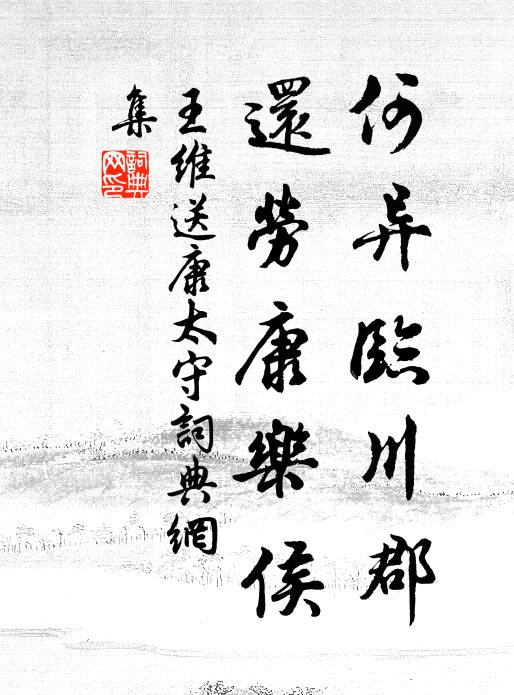 何异臨川郡
還勞康樂侯
王維送康太守詞典網
集
詞典
网印